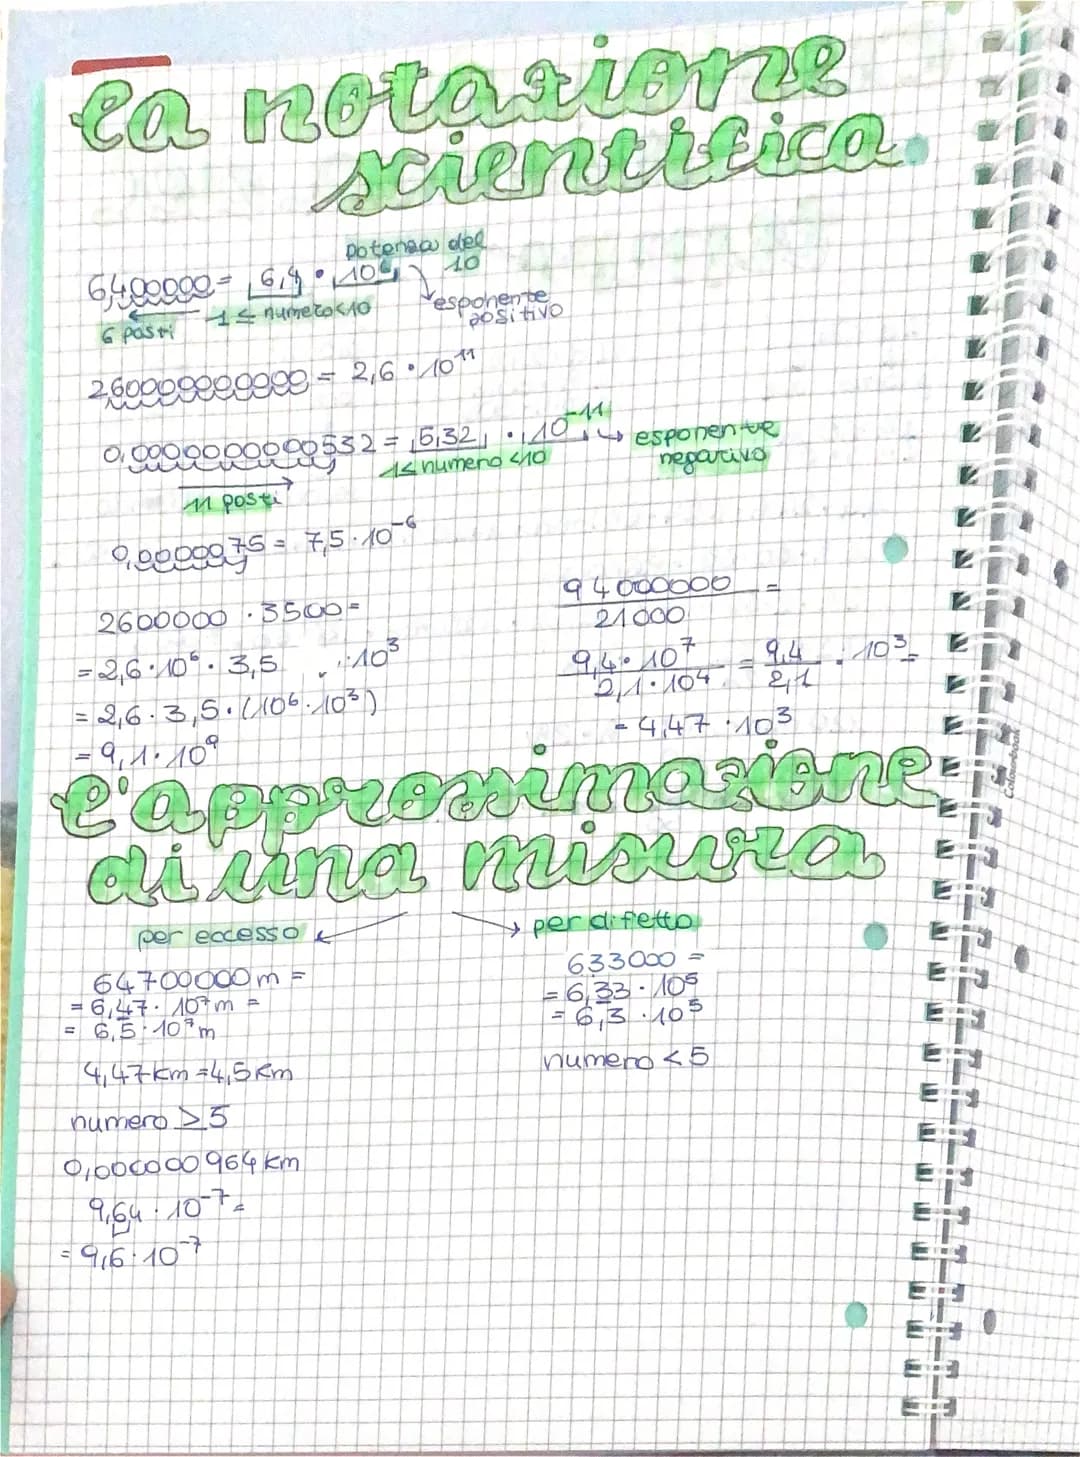 la notazione
scientifica
potenza del
10
6400000 = 6,4 • 10⁶
esponente
positivo
1 ≤ numero < 10
6 posti
260000000000 = 2,6 • 10¹¹
0,0000000000532 = 5,32 • 10⁻¹¹ → esponente
negativo
1 ≤ numero < 10
11 posti
0,0000075 = 7,5 · 10⁻⁶
2600000 · 3500 =
= 2,6 · 10⁶ · 3,5 · 10³
= 2,6 · 3,5 · (10⁶ · 10³)
= 9,1 · 10⁹
94000000 =
21000
9,4 · 10⁷ = 9,4 · 10³ =
2,1 · 10⁴ 2,1
= 4,47 · 10³
l'approssimazione
di una misura
per eccesso
64700000 m =
= 6,47 · 10⁷ m =
= 6,5 · 10⁷ m
4,47 km = 4,5 km
numero ≥ 5
0,000000964 km
9,64 · 10⁻⁷ =
= 9,6 · 10⁻⁷
per difetto
633000 =
= 6,33 · 10⁵
= 6,3 · 10⁵
numero < 5
Colourbook